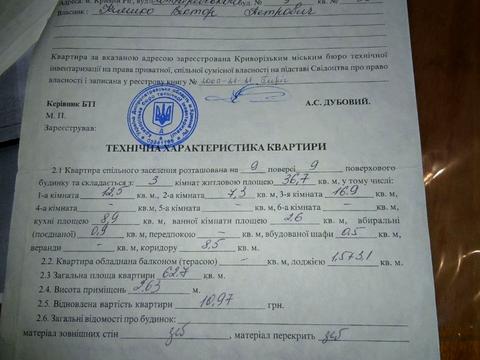 Адреса: м. Кривий Ріг, вул.
Власник: Климко Віктор Петрович
Квартира за вказаною адресою зареєстрована Криворізьким міським бюро технічної
інвентаризації на праві приватної, спільної сумісної власності на підставі Свідоцтва про право
власності і записана у реєстрову книгу №
Керівник БТІ А.С. ДУБОВИЙ.
М. П.
Зареєстрував:
ТЕХНІЧНА ХАРАКТЕРИСТИКА КВАРТИРИ
2.1 Квартира спільного заселення розташована на 9 поверсі 9 поверхового
будинку та складається з: 3 кімнат житловою площею 36,7 кв. м, у тому числі:
1-а кімната 12,5 кв. м., 2-а кімната 7,3 кв. м, 3-я кімната 16,9 кв. м,
4-а кімната - кв. м, 5-а кімната - кв. м, 6-а кімната - кв. м,
кухні площею 8,9 кв. м, ванної кімнати площею 2,6 кв. м, вбиральні
(поєднаної) 0,9 кв. м, передпокою - кв. м, вбудованої шафи 0,5 кв. м,
веранди - кв. м, коридору 8,5 кв. м.
2.2. Квартира обладнана балконом (терасою) - кв. м, лоджією кв. м.
2.3 Загальна площа квартири 62,7 кв. м.
2.4. Висота приміщень 2,63 м.
2.5. Відновлена вартість квартири 10,97 грн.
2.6. Загальні відомості про будинок:
матеріал зовнішніх стін з/б, матеріал перекрить з/б